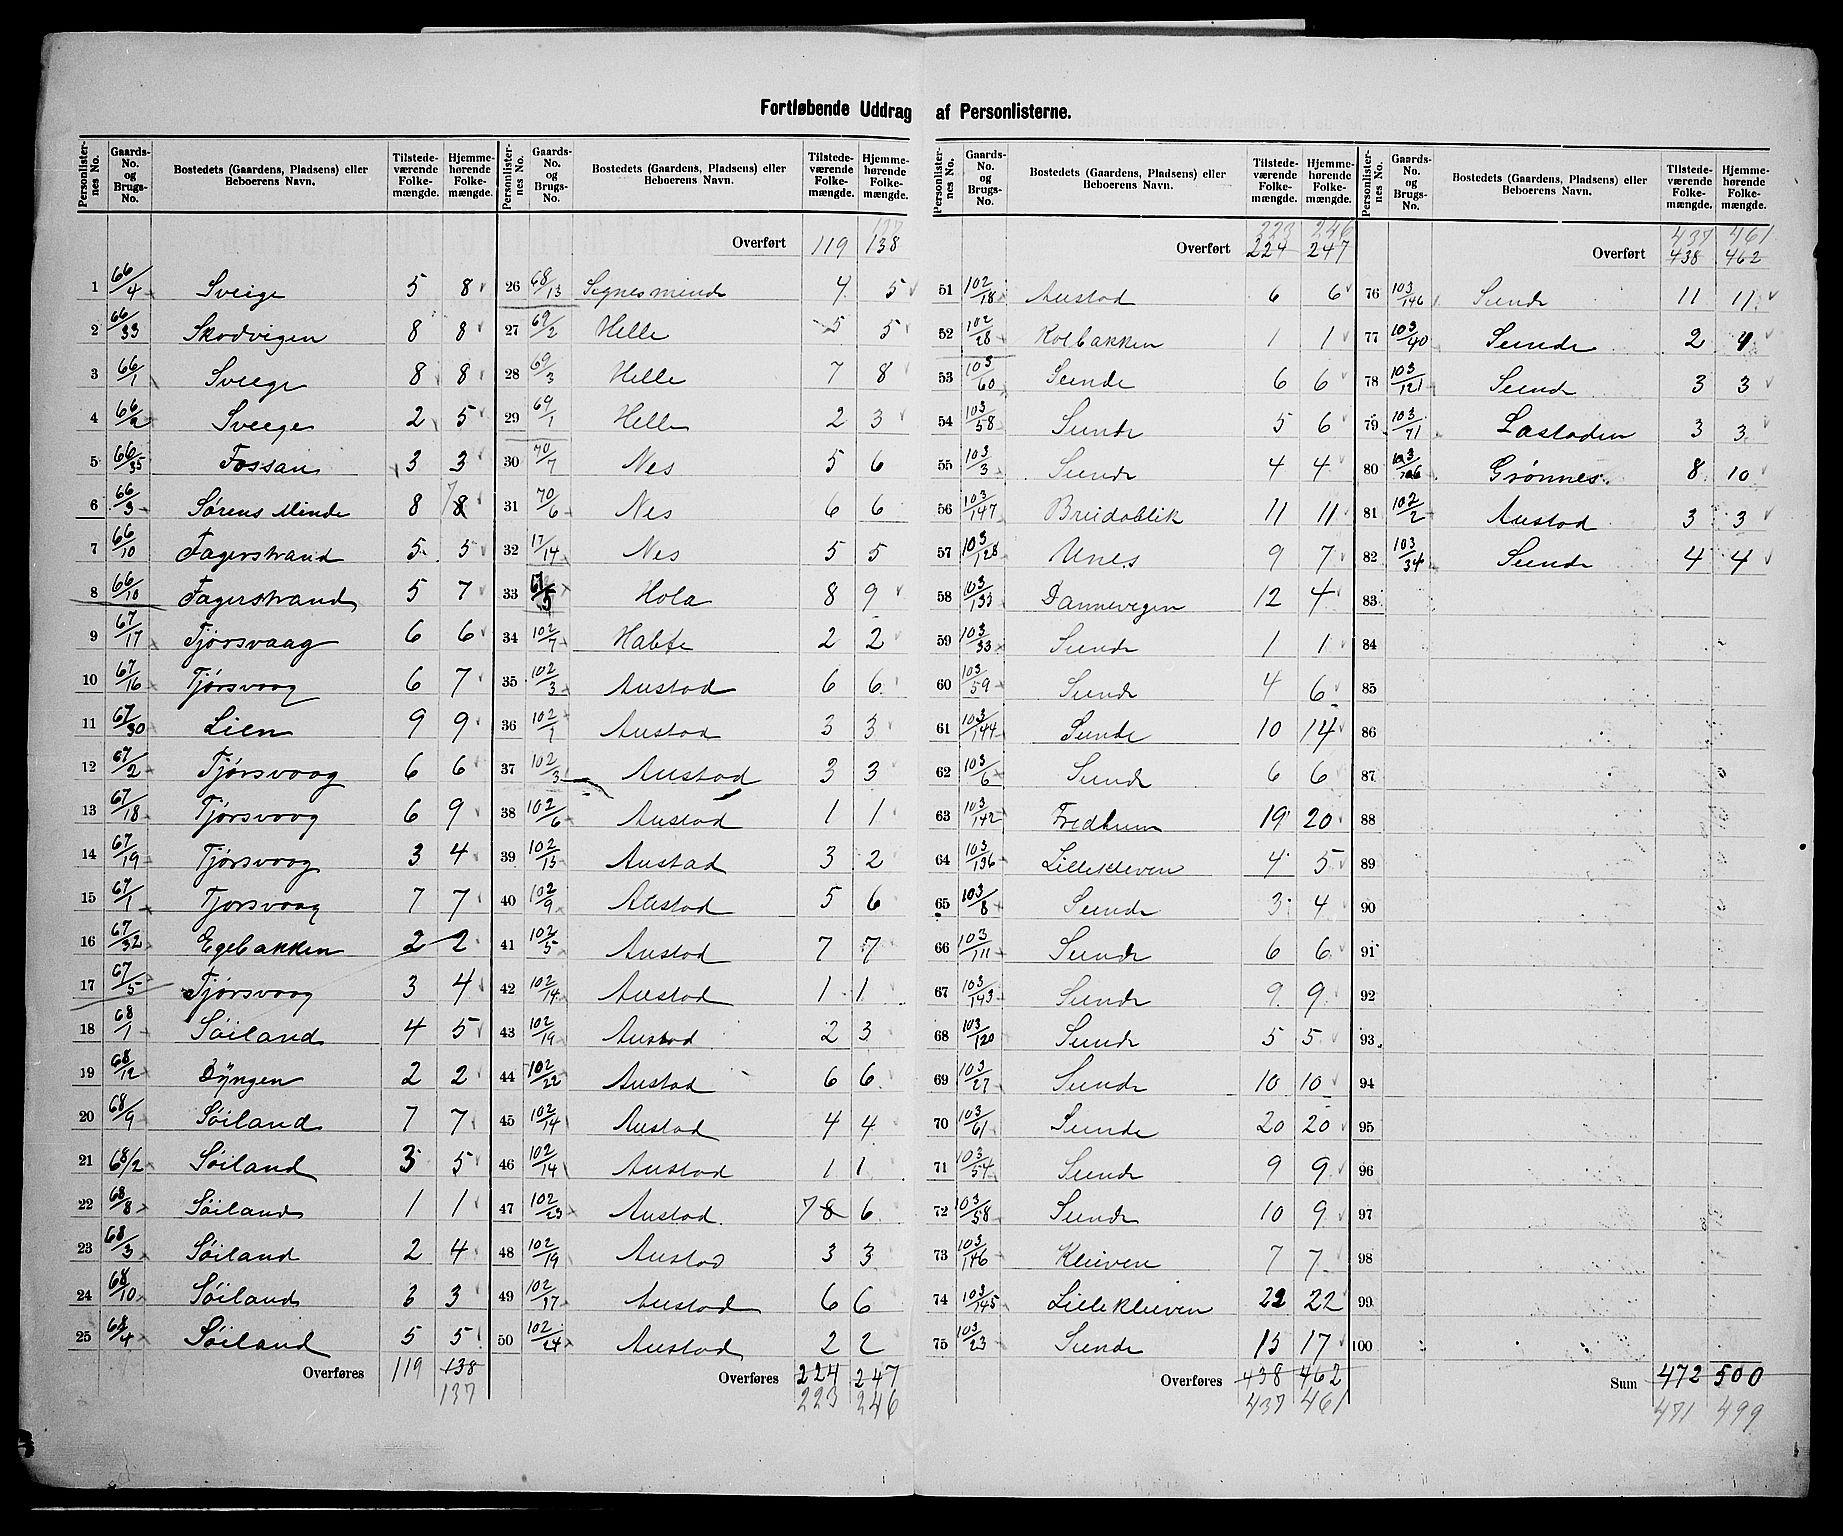 Fortløbende Uddrag af Personlisterne.
Personlisternes No. | Gaards-No. og Brugs-No. | Bostedets (Gaardens, Pladsens) eller Beboerens Navn. | Tilstedeværende Folkemængde. | Hjemmehørende Folkemængde.
1 66/4 Sveige 5 8
2 66/33 Skodvigen 8 8
3 66/1 Sveige 8 8
4 66/2 Sveige 2 5
5 66/35 Fossan 3 3
6 66/3 Sørens Minde 8 7 8
7 66/10 Fagerstrand 5 5
8 66/10 Fagerstrand 5 7
9 67/17 Tjørsvaag 6 6
10 67/16 Tjørsvaag 6 7
11 67/30 Lien 9 9
12 67/2 Tjørsvaag 6 6
13 67/18 Tjørsvaag 6 9
14 67/19 Tjørsvaag 3 4
15 67/1 Tjørsvaag 7 7
16 67/32 Egebakken 2 2
17 67/5 Tjørsvaag 3 4
18 68/1 Søiland 4 5
19 68/12 Dyngen 2 2
20 68/9 Søiland 7 7
21 68/2 Søiland 3 5
22 68/8 Søiland 1 1
23 68/3 Søiland 2 4
24 68/10 Søiland 3 3
25 68/4 Søiland 5 5
Overføres 119 138
137
Personlisternes No. | Gaards-No. og Brugs-No. | Bostedets (Gaardens, Pladsens) eller Beboerens Navn. | Tilstedeværende Folkemængde. | Hjemmehørende Folkemængde.
Overført 119 138
26 68/13 Signesminde 4 5
27 69/2 Helle 5 5
28 69/3 Helle 7 8
29 69/1 Helle 2 3
30 70/7 Nes 5 6
31 70/6 Nes 6 6
32 17/14 Nes 5 5
33 67/5 Hola 8 9
34 102/7 Habte 2 2
35 102/3 Austad 6 6
36 102/1 Austad 3 3
37 102/3 Austad 3 3
38 102/6 Austad 1 1
39 102/15 Austad 3 2
40 102/9 Austad 5 6
41 102/5 Austad 7 7
42 102/14 Austad 1 1
43 102/19 Austad 2 3
44 102/22 Austad 6 6
45 102/14 Austad 4 4
46 102/14 Austad 1 1
47 102/23 Austad 7 8 6
48 102/19 Austad 3 3
49 102/17 Austad 6 6
50 102/24 Austad 2 2
Overføres 224 247
223 246
Personlisternes No. | Gaards-No. og Brugs-No. | Bostedets (Gaardens, Pladsens) eller Beboerens Navn. | Tilstedeværende Folkemængde. | Hjemmehørende Folkemængde.
223 246
Overført 224 247
51 102/18 Austad 6 6
52 102/28 Kolbakken 1 1
53 103/60 Sunde 6 6
54 103/58 Sunde 5 6
55 103/3 Sunde 4 4
56 103/147 Breidablik 11 11
57 103/128 Unes 9 7
58 103/133 Dannevigen 12 4
59 103/33 Sunde 1 1
60 103/59 Sunde 4 6
61 103/144 Sunde 10 14
62 103/6 Sunde 6 6
63 103/142 Fredheim 19 20
64 103/136 Lillekleven 4 5
65 103/8 Sunde 3 4
66 103/111 Sunde 6 6
67 103/143 Sunde 9 9
68 103/120 Sunde 5 5
69 103/27 Sunde 10 10
70 103/61 Sunde 20 20
71 103/54 Sunde 9 9
72 103/58 Sunde 10 9
73 103/146 Kleiven 7 7
74 103/145 Lillekleiven 22 22
75 103/23 Sunde 15 17
Overføres 438 462
437 461
Personlisternes No. | Gaards-No. og Brugs-No. | Bostedets (Gaardens, Pladsens) eller Beboerens Navn. | Tilstedeværende Folkemængde. | Hjemmehørende Folkemængde.
437 461
Overført 438 462
76 103/146 Sunde 11 11
77 103/40 Sunde 2
78 103/121 Sunde 3 3
79 103/71 Lastaden 3 3
80 Grønnes 8 10
81 102/2 Austad 3 3
82 103/34 Sunde 4 4
83
84
85
86
87
88
89
90
91
92
93
94
95
96
97
98
99
100
Sum 472 500
471 499